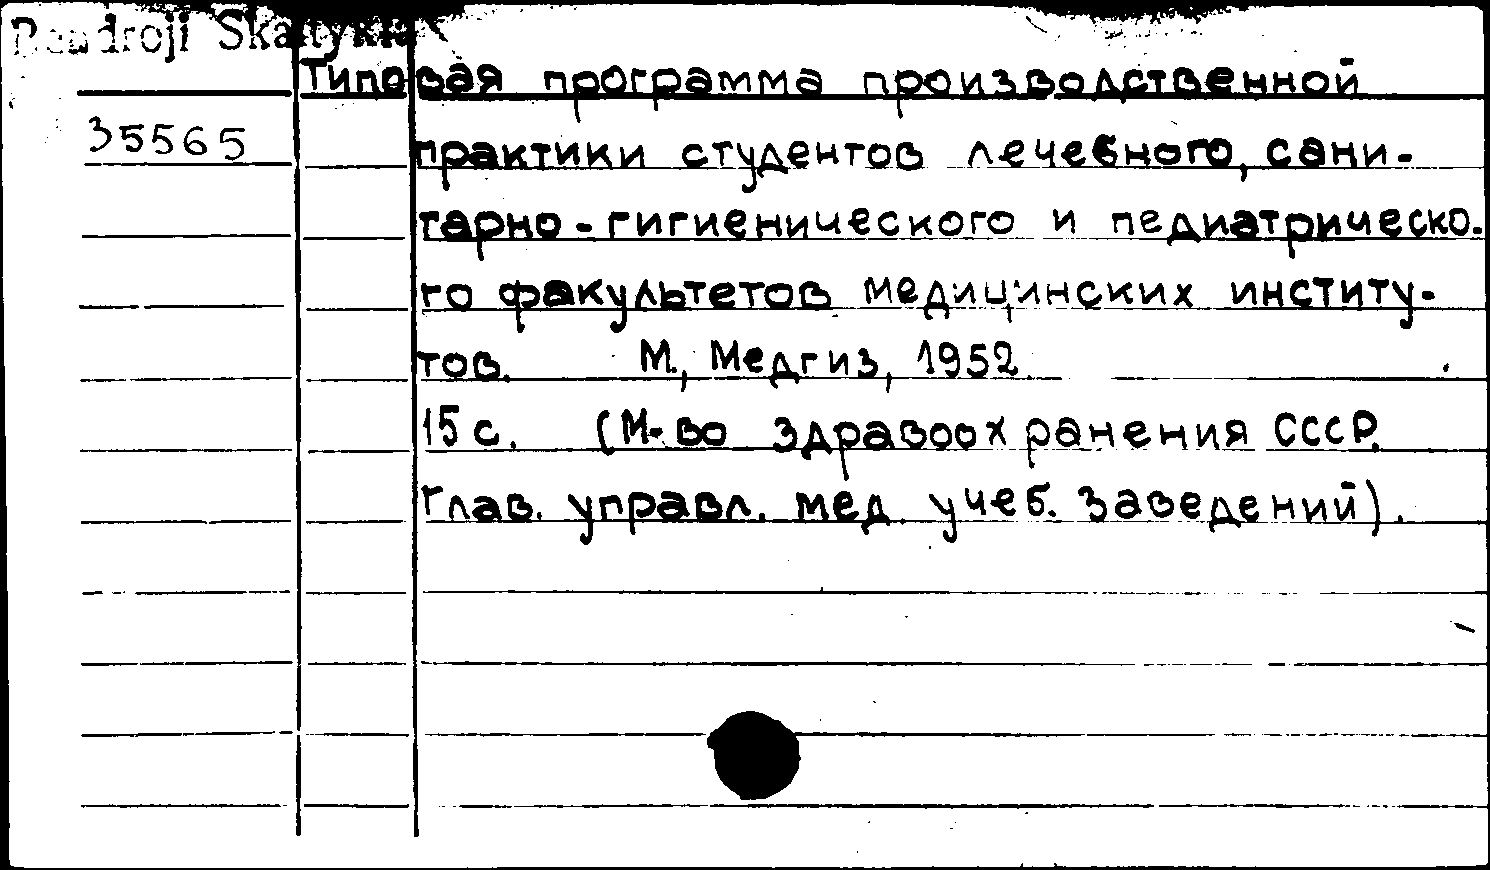 Bendroji Skaitykla
Типовая программа производственной
35565
практики студентов лечебного, сани-
тарно-гигиенического и педиатрическо-
го факультетов медицинских институ-
тов. М., Медгиз, 1952.
15 с. (М-во здравоохранения СССР.
Глав. управл. мед. учеб. заведений).